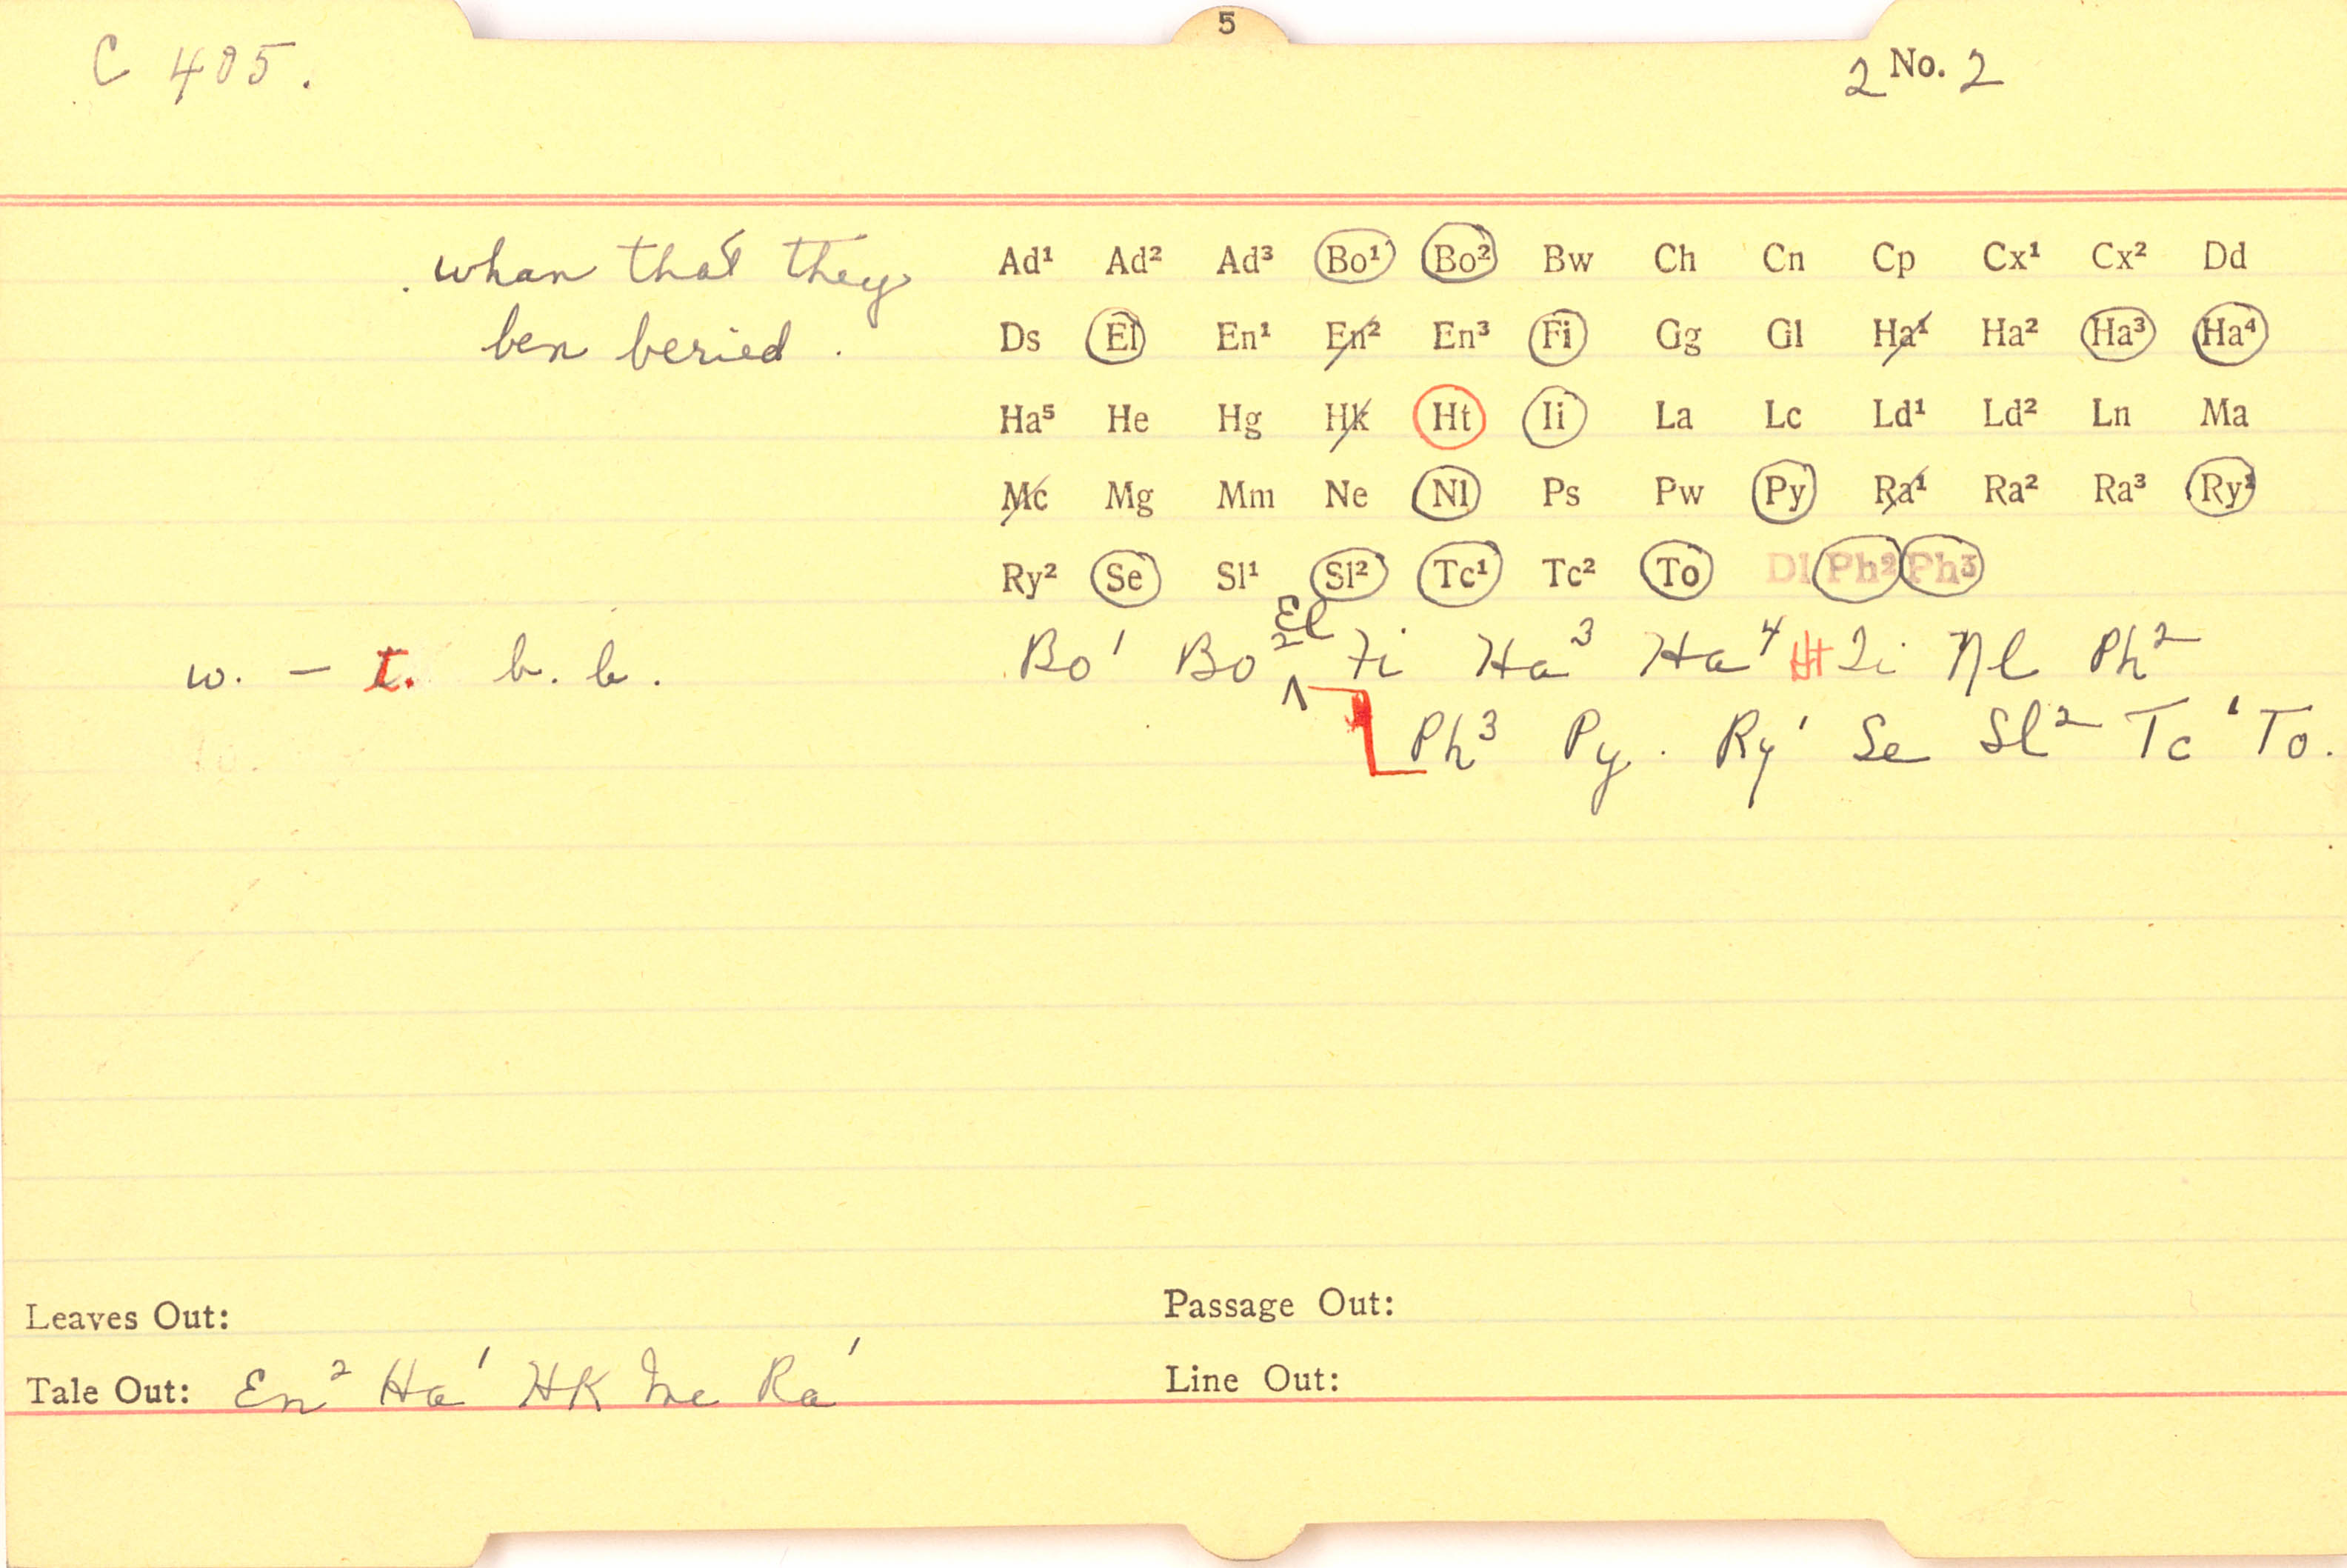 5
C 405.
2 No. 2
. whan that they
ben beried .
Ad¹ Ad² Ad³ Bo¹ Bo² Bw Ch Cn Cp Cx¹ Cx² Dd
Ds El En¹ En² En³ Fi Gg Gl Ha¹ Ha² Ha³ Ha⁴
Ha⁵ He Hg Hk Ht Ii La Lc Ld¹ Ld² Ln Ma
Mc Mg Mm Ne Nl Ps Pw Py Ra¹ Ra² Ra³ Ry¹
Ry² Se Sl¹ Sl² Tc¹ Tc² To Dl Ph² Ph³
w. – t. b. b. Bo¹ Bo² El Fi Ha³ Ha⁴ Ht Ii Nl Ph²
Ph³ Py. Ry¹ Se Sl² Tc¹ To.
Leaves Out:
Passage Out:
Tale Out: En² Ha¹ HK Mc Ra¹
Line Out: